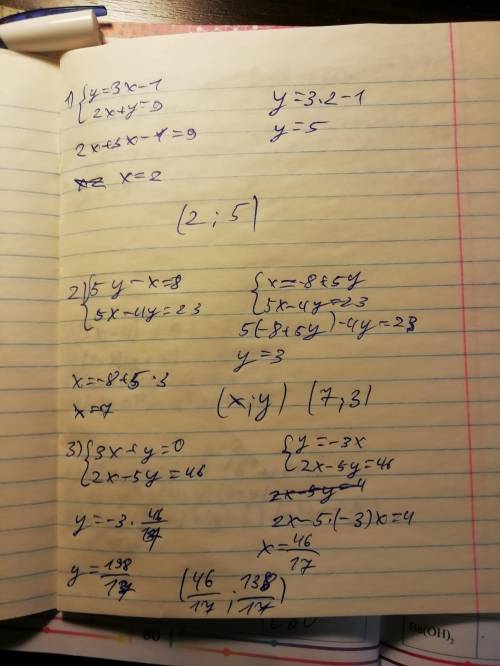 1) { y=3x-1
2x+y=9
2x+3x-1=9
x=2
y=3·2-1
y=5
(2;5)
2) { 5y-x=8
5x-4y=23
{ x=-8+5y
5x-4y=23
5(-8+5y)-4y=23
y=3
x=-8+5·3
x=7
(x;y) (7;3)
3) { 3x+y=0
2x-5y=46
{ y=-3x
2x-5y=46
2x-5y=4
2x-5·(-3)x=4
x=46/17
y=-3·46/17
y=138/17
(46/17;138/17)
80
Ba(OH)₂